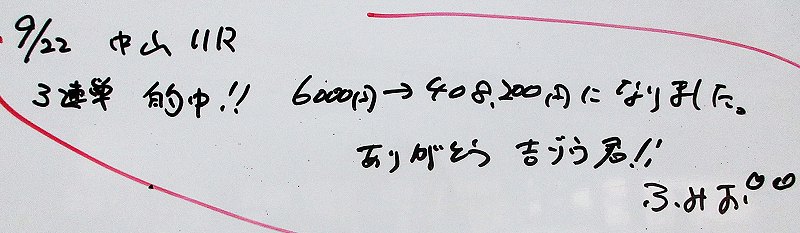 9/22 中山 11R
3連単 的中!! 6000円→408,200円になりました。
ありがとう 吉ゾウ君!!
ふみお